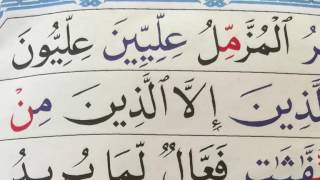 ٱلْمُزَّمِّلُ عِلِيِّينَ عِلِيُّونَ
ٱلَّذِينَ إِلَّا ٱلَّذِينَ مِنْ
فَعَّالٌ لِّمَا يُرِيدُ